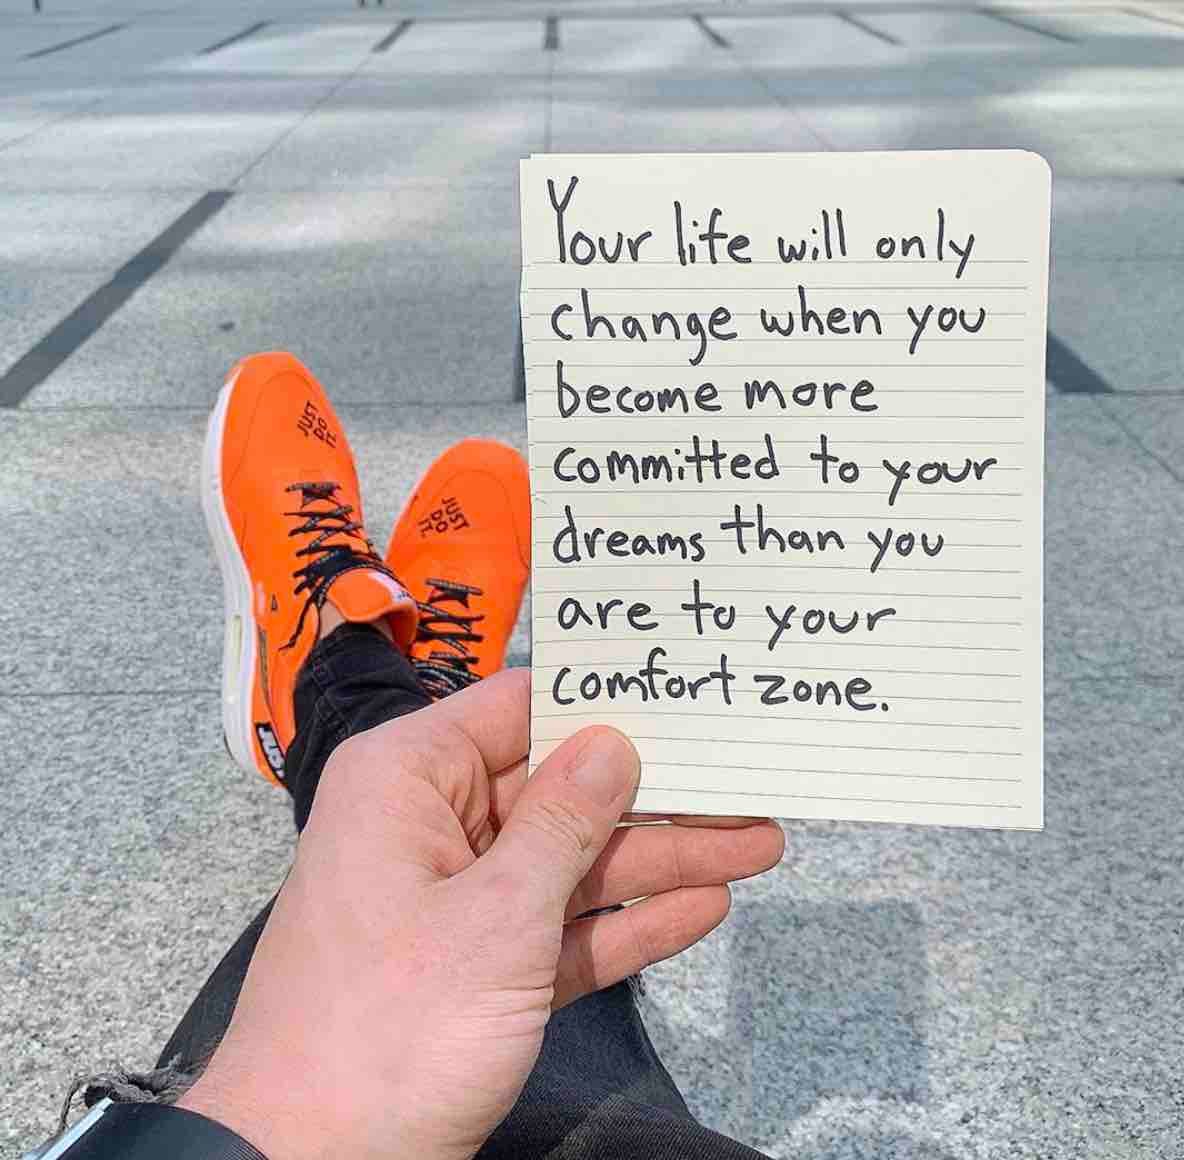 Your life will only
change when you
become more
committed to your
dreams than you
are to your
comfort zone.
JUST
DO
IT.
JUST
DO
IT.
JUST